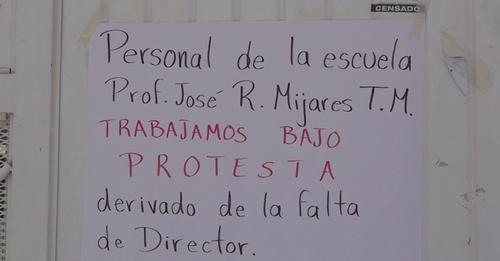 CENSADO
Personal de la escuela
Prof. José R. Mijares T.M.
TRABAJAMOS BAJO
PROTESTA
derivado de la falta
de Director.